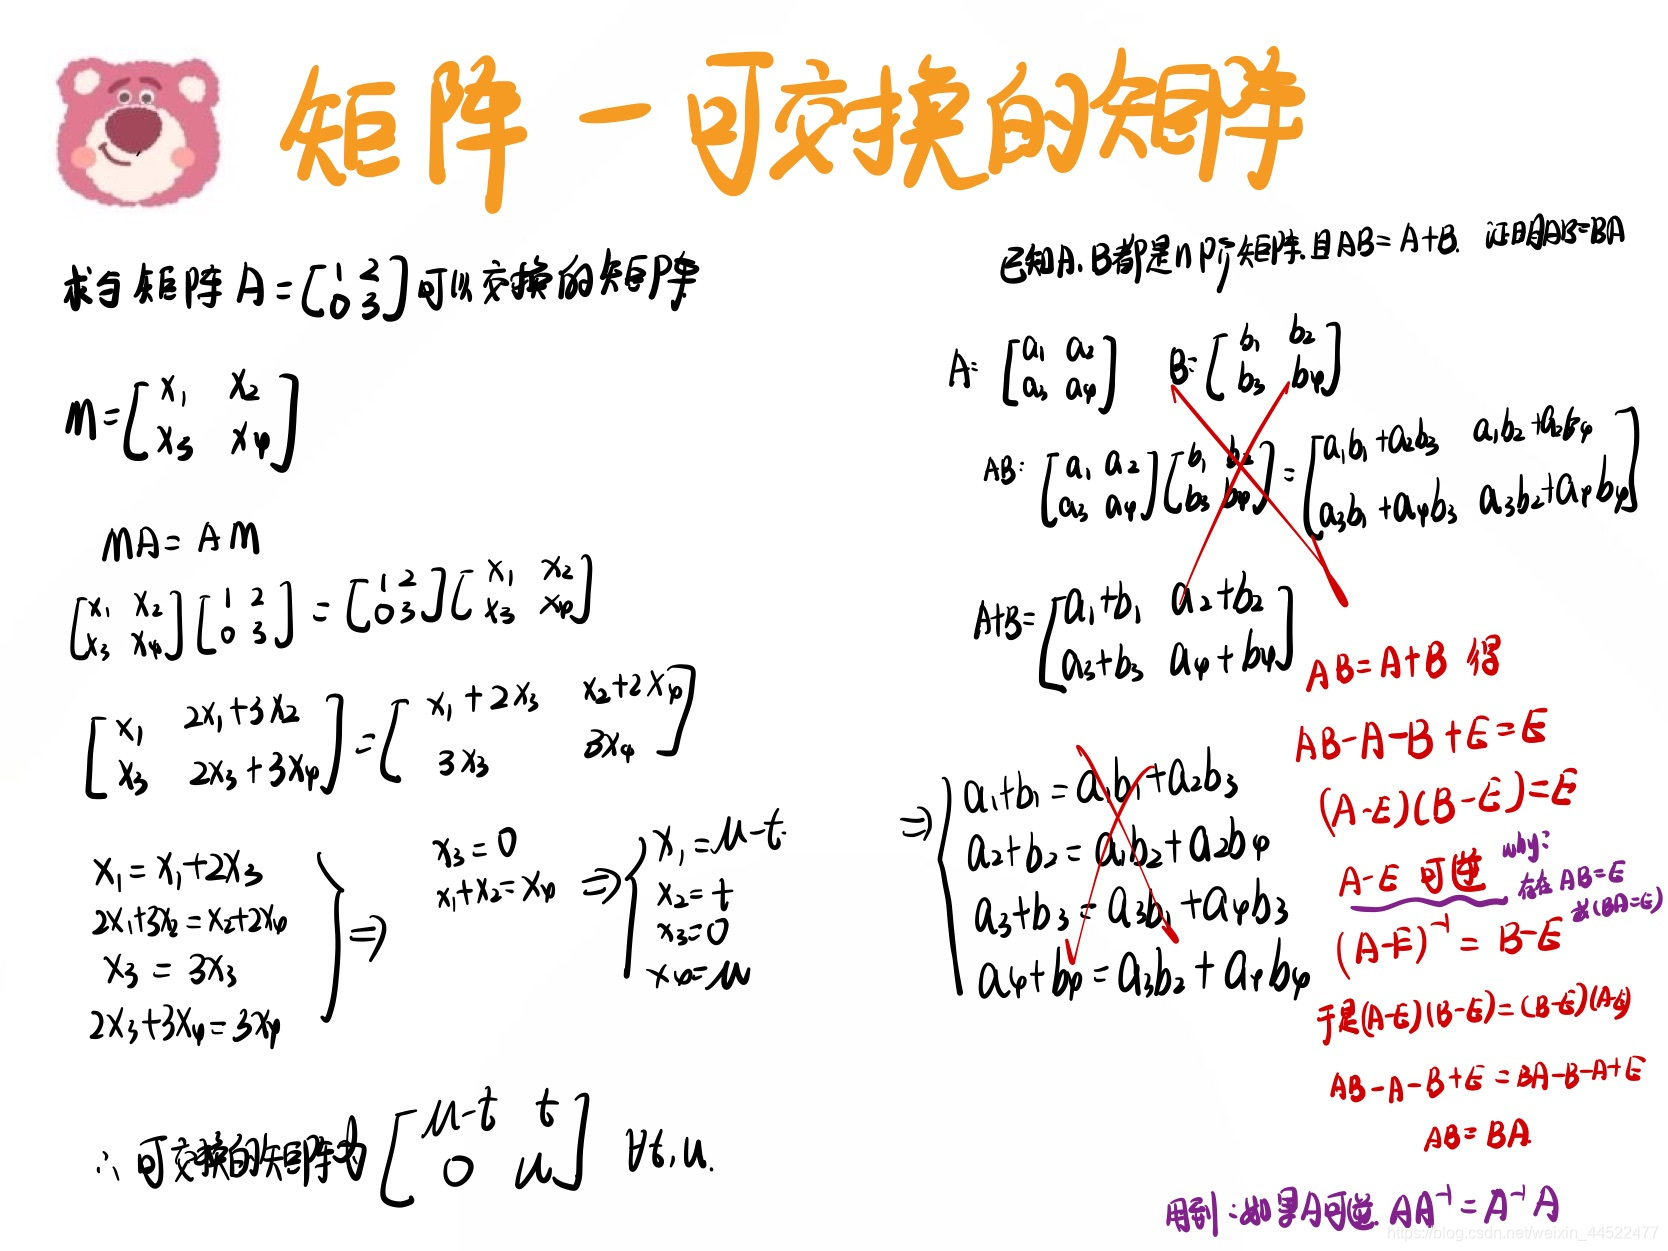 矩阵 — 可交换的矩阵
求与矩阵 A = [1 2; 0 3] 可以交换的矩阵
M = [x₁ x₂; x₃ x₄]
MA = AM
[x₁ x₂; x₃ x₄] [1 2; 0 3] = [1 2; 0 3] [x₁ x₂; x₃ x₄]
[x₁ 2x₁+3x₂; x₃ 2x₃+3x₄] = [x₁+2x₃ x₂+2x₄; 3x₃ 3x₄]
x₁ = x₁+2x₃
2x₁+3x₂ = x₂+2x₄
x₃ = 3x₃
2x₃+3x₄ = 3x₄
⇒
x₃ = 0
x₁+x₂ = x₄
⇒
x₁ = u-t
x₂ = t
x₃ = 0
x₄ = u
∴ 可交换的矩阵为 [u-t t; 0 u] ∀t,u.
已知A、B都是n阶矩阵,且AB=A+B. 证明AB=BA
A: [a₁ a₂; a₃ a₄] B: [b₁ b₂; b₃ b₄]
AB: [a₁ a₂; a₃ a₄] [b₁ b₂; b₃ b₄] = [a₁b₁+a₂b₃ a₁b₂+a₂b₄; a₃b₁+a₄b₃ a₃b₂+a₄b₄]
A+B = [a₁+b₁ a₂+b₂; a₃+b₃ a₄+b₄]
⇒
a₁+b₁ = a₁b₁+a₂b₃
a₂+b₂ = a₁b₂+a₂b₄
a₃+b₃ = a₃b₁+a₄b₃
a₄+b₄ = a₃b₂+a₄b₄
AB=A+B 得
AB-A-B+E=E
(A-E)(B-E)=E
A-E 可逆
why:
存在 AB=E
或(BA=E)
(A-E)⁻¹ = B-E
于是(A-E)(B-E)=(B-E)(A-E)
AB-A-B+E = BA-B-A+E
AB=BA
用到:如果A可逆. AA⁻¹=A⁻¹A
https://blog.csdn.net/weixin_44522477